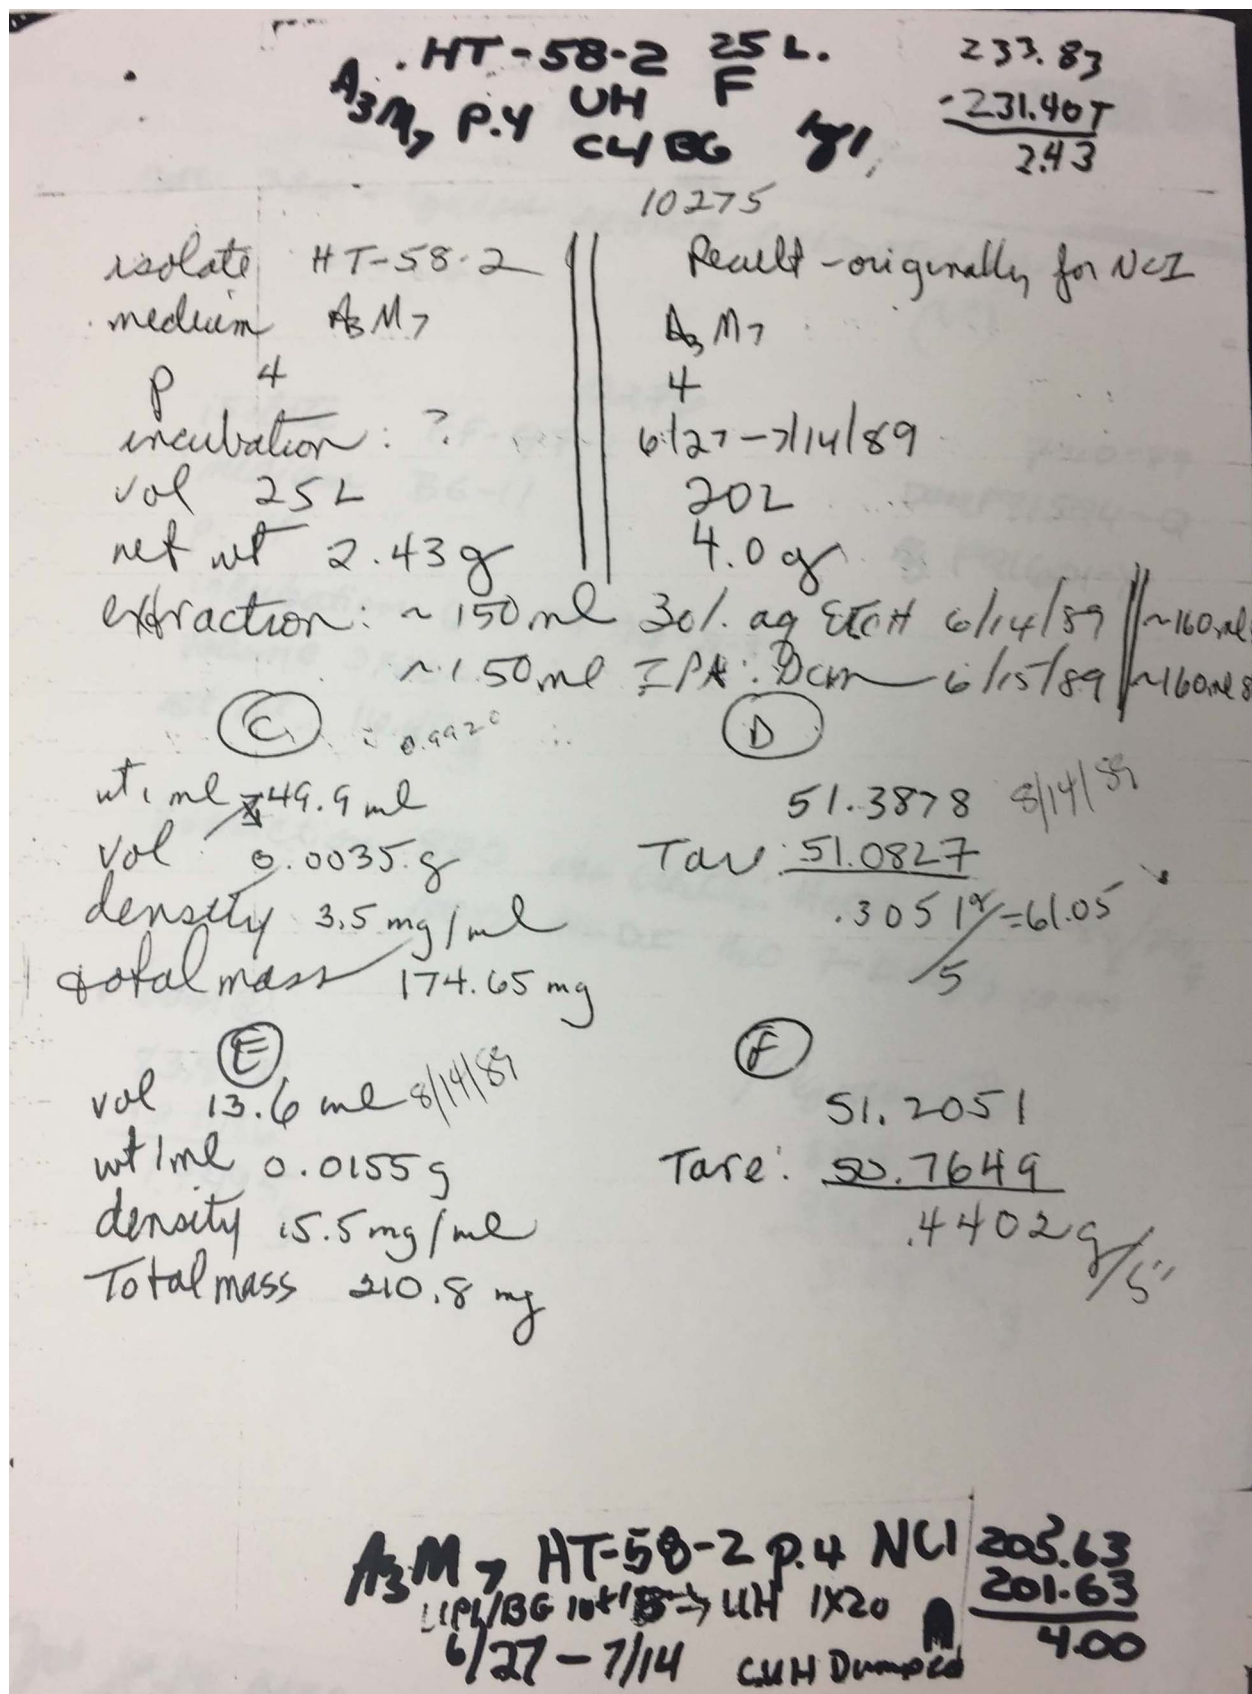 . HT-58-2 25 L.
A3M7 P.4 UH F
C4/BG
233.83
-231.40T
2.43
10275
isolate HT-58-2
medium A3M7
P 4
incubation: ?
vol 25L
net wt 2.43g
Recult - originally for NCI
A3M7
4
6/27-7/14/89
20L
4.0g
extraction: ~150ml 30% aq EtOH 6/14/89 ~160ml
~150ml IPA:Dcm 6/15/89 ~160ml 8
C
0.992
wt 1 ml 49.9 ml
vol 0.0035 g
density 3.5 mg/ml
total mass 174.65 mg
D
51.3878 8/14/89
Tare: 51.0827
.3051g/5 = 61.05
E
vol 13.6 ml 8/14/89
wt 1ml 0.0155g
density 15.5 mg/ml
Total mass 210.8 mg
F
51.2051
Tare: 50.7649
.4402g/5
A3M7 HT-58-2 p.4 NCI
/BG → UH 1X20
6/27-7/14 C.UH Dumped
205.63
201.63
4.00